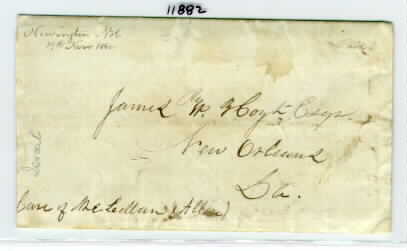 11882
Newington N.H.
19th Novr
James W. Hoyt Esqr.
New Orleans
La.
Care of McLellan (Allen)